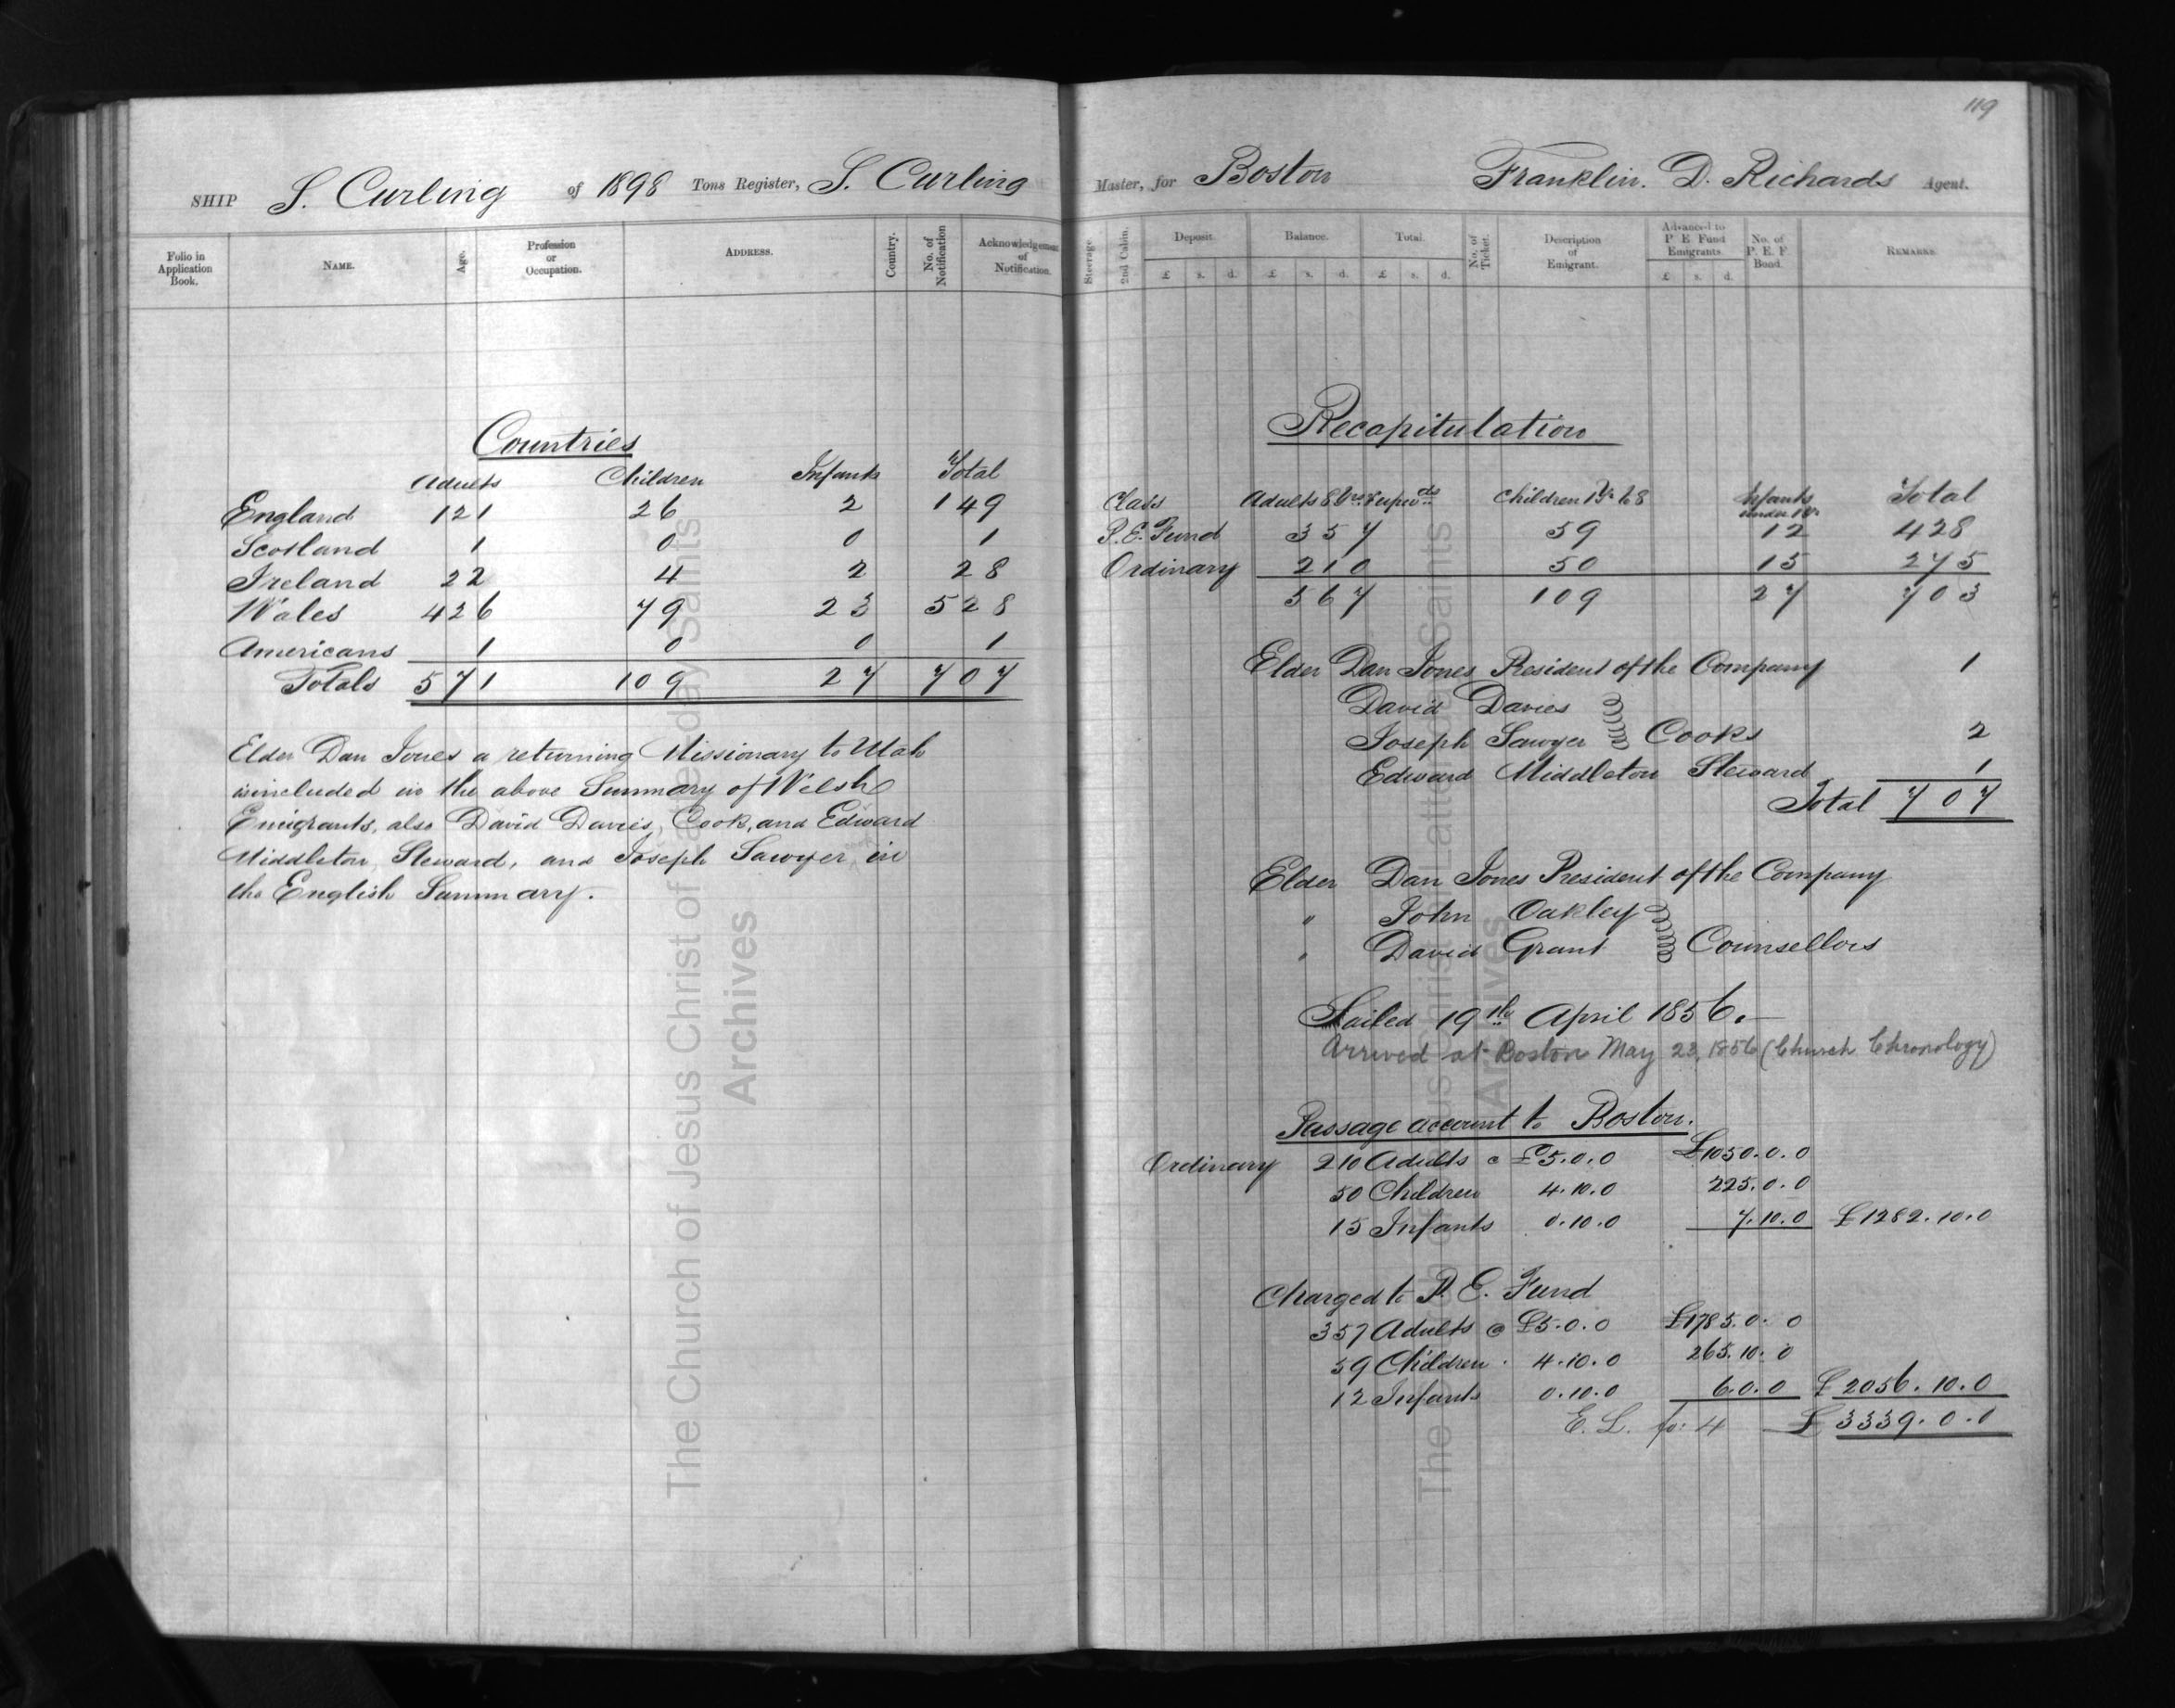 119
SHIP S. Curling of 1898 Tons Register, S. Curling
Folio in Application Book.
NAME.
Age.
Profession or Occupation.
ADDRESS.
Country.
No. of Notification
Acknowledgement of Notification.
Countries
Adults Children Infants Total
England 121 26 2 149
Scotland 1 0 0 1
Ireland 22 4 2 28
Wales 426 79 23 528
Americans 1 0 0 1
Totals 571 109 27 707
Elder Dan Jones a returning Missionary to Utah
is included in the above Summary of Welsh
Emigrants, also David Davies, Cook, and Edward
Middleton, Steward, and Joseph Sawyer in
the English Summary.
Master, for Boston Franklin. D. Richards Agent.
Steerage
2nd Cabin.
Deposit.
£ s. d.
Balance.
£ s. d.
Total.
£ s. d.
No. of Ticket.
Description of Emigrant.
Advanced to P E Fund Emigrants
£ s. d.
No. of P. E. F. Bond.
REMARKS.
Recapitulation
Class Adults 8 Yrs & upwds Children 1 Yr to 8 Infants under 1 Yr Total
P. E. Fund 357 59 12 428
Ordinary 210 50 15 275
567 109 27 703
Elder Dan Jones President of the Company 1
David Davies
Joseph Sawyer Cooks 2
Edward Middleton Steward 1
Total 707
Elder Dan Jones President of the Company
" John Oakley
" David Grant Counsellors
Sailed 19th April 1856.
Arrived at Boston May 23, 1856 (Church Chronology)
Passage account to Boston.
Ordinary 210 Adults @ £5.0.0 £1050.0.0
50 Children 4.10.0 225.0.0
15 Infants 0.10.0 7.10.0 £1282.10.0
Charged to P. E. Fund
357 Adults @ £5.0.0 £1785.0.0
59 Children 4.10.0 265.10.0
12 Infants 0.10.0 6.0.0 £2056.10.0
E. L. fo: 4 £3339.0.0
The Church of Jesus Christ of Latter-day Saints
Archives
The Church of Jesus Christ of Latter-day Saints
Archives